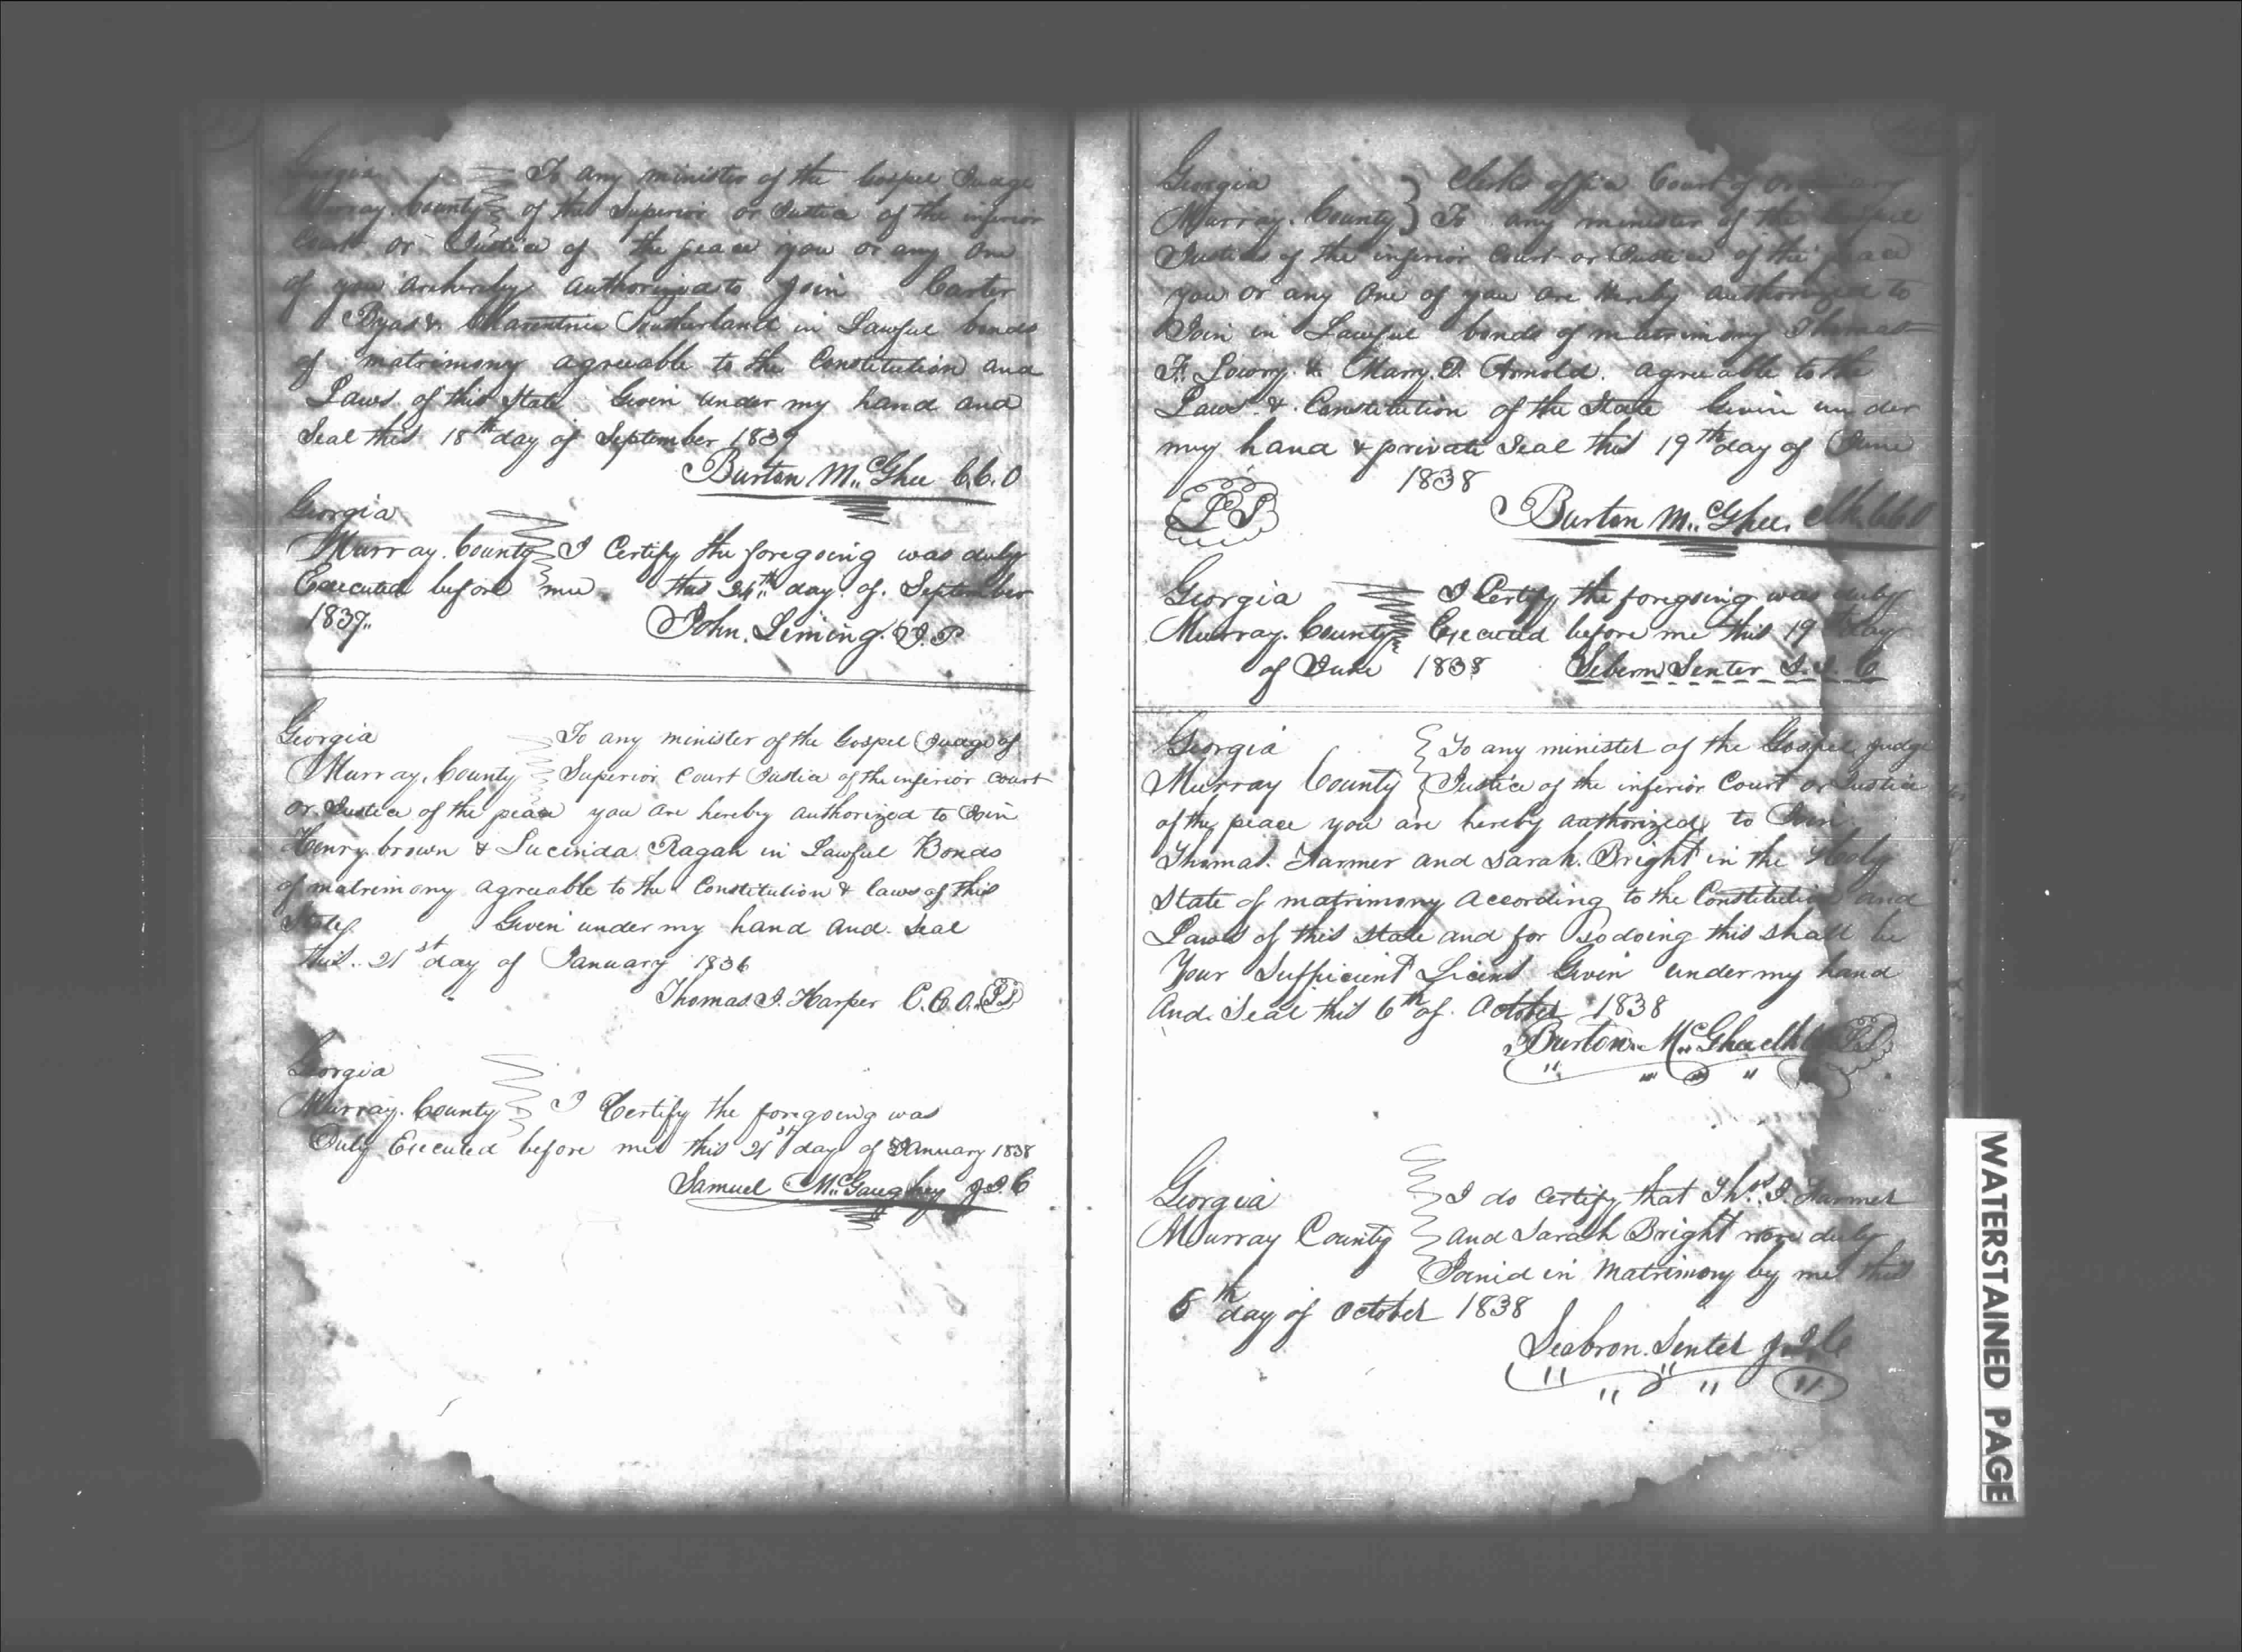 Georgia To any minister of the Gospel Judge
Murray County of the Superior or Justice of the inferior
Court or Justice of the peace you or any one
of you are hereby authorized to join Carter
& Southerland in Lawful bonds
of matrimony agreeable to the Constitution and
Laws of this State Given under my hand and
Seal this 18th day of September 1837
Burton McGhee C.C.O
Georgia
Murray County I Certify the foregoing was duly
Executed before me this 24th day of September
1837 John Leming J.P
Georgia To any minister of the Gospel Judge of
Murray County Superior Court Justice of the inferior court
or Justice of the peace you are hereby authorized to Join
Henry brown & Lucinda Ragan in Lawful Bonds
of matrimony agreeable to the Constitution & laws of this
State Given under my hand and Seal
this 21st day of January 1836
Thomas J. Harper C.C.O. LS
Georgia
Murray County I Certify the foregoing was
Duly Executed before me this 21st day of January 1838
Samuel McGaughey J.I.C
Georgia Clerks office Court of Ordinary
Murray County } To any minister of the Gospel
Justice of the inferior Court or Justice of the peace
you or any One of you are hereby authorized to
Join in Lawful bonds of matrimony Thomas
F. Lowry & Marry. D. Arnold. agreeable to the
Laws & Constitution of the State Given under
my hand & private Seal this 19th day of June
1838
LS
Burton McGhee Clk C.C.O
Georgia I Certify the foregoing was duly
Murray County Executed before me this 19th day
of June 1838 Sebern Senter J.I.C
Georgia { To any minister of the Gospel judge
Murray County { Justice of the inferior Court or Justice
of the peace you are hereby authorized to Join
Thomas. Farmer and Sarah Bright in the Holy
State of matrimony according to the Constitution and
Laws of this State and for so doing this shall be
Your Sufficient Licens Given under my hand
And Seal this 6th of October 1838
Burton McGhee clk LS
Georgia I do certify that Thos. J. Farmer
Murray County and Sarah Bright were duly
Joined in Matrimony by me this
8th day of October 1838
Seabron Senter J.I.C
WATERSTAINED PAGE